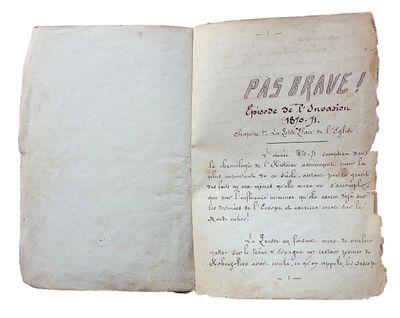 — 1 —
PAS BRAVE !
Episode de l'Invasion
1870-71.
Chapitre 1er La Petite Place de l'Eglise.
L'année 1870-71 comptera dans
la chronologie de l'Histoire assurément pour la
plus importante de ce siècle, autant par la gravité
des faits en eux mêmes qu'elle aura vu s'accomplir,
que par l'influence immense qu'elle aura déjà sur
les destinées de l'Europe et exercera encore sur le
Monde entier !
La Prusse en faisant mine de vouloir
mettre sur le trône d'Espagne un certain prince de
Hohenzollern avait